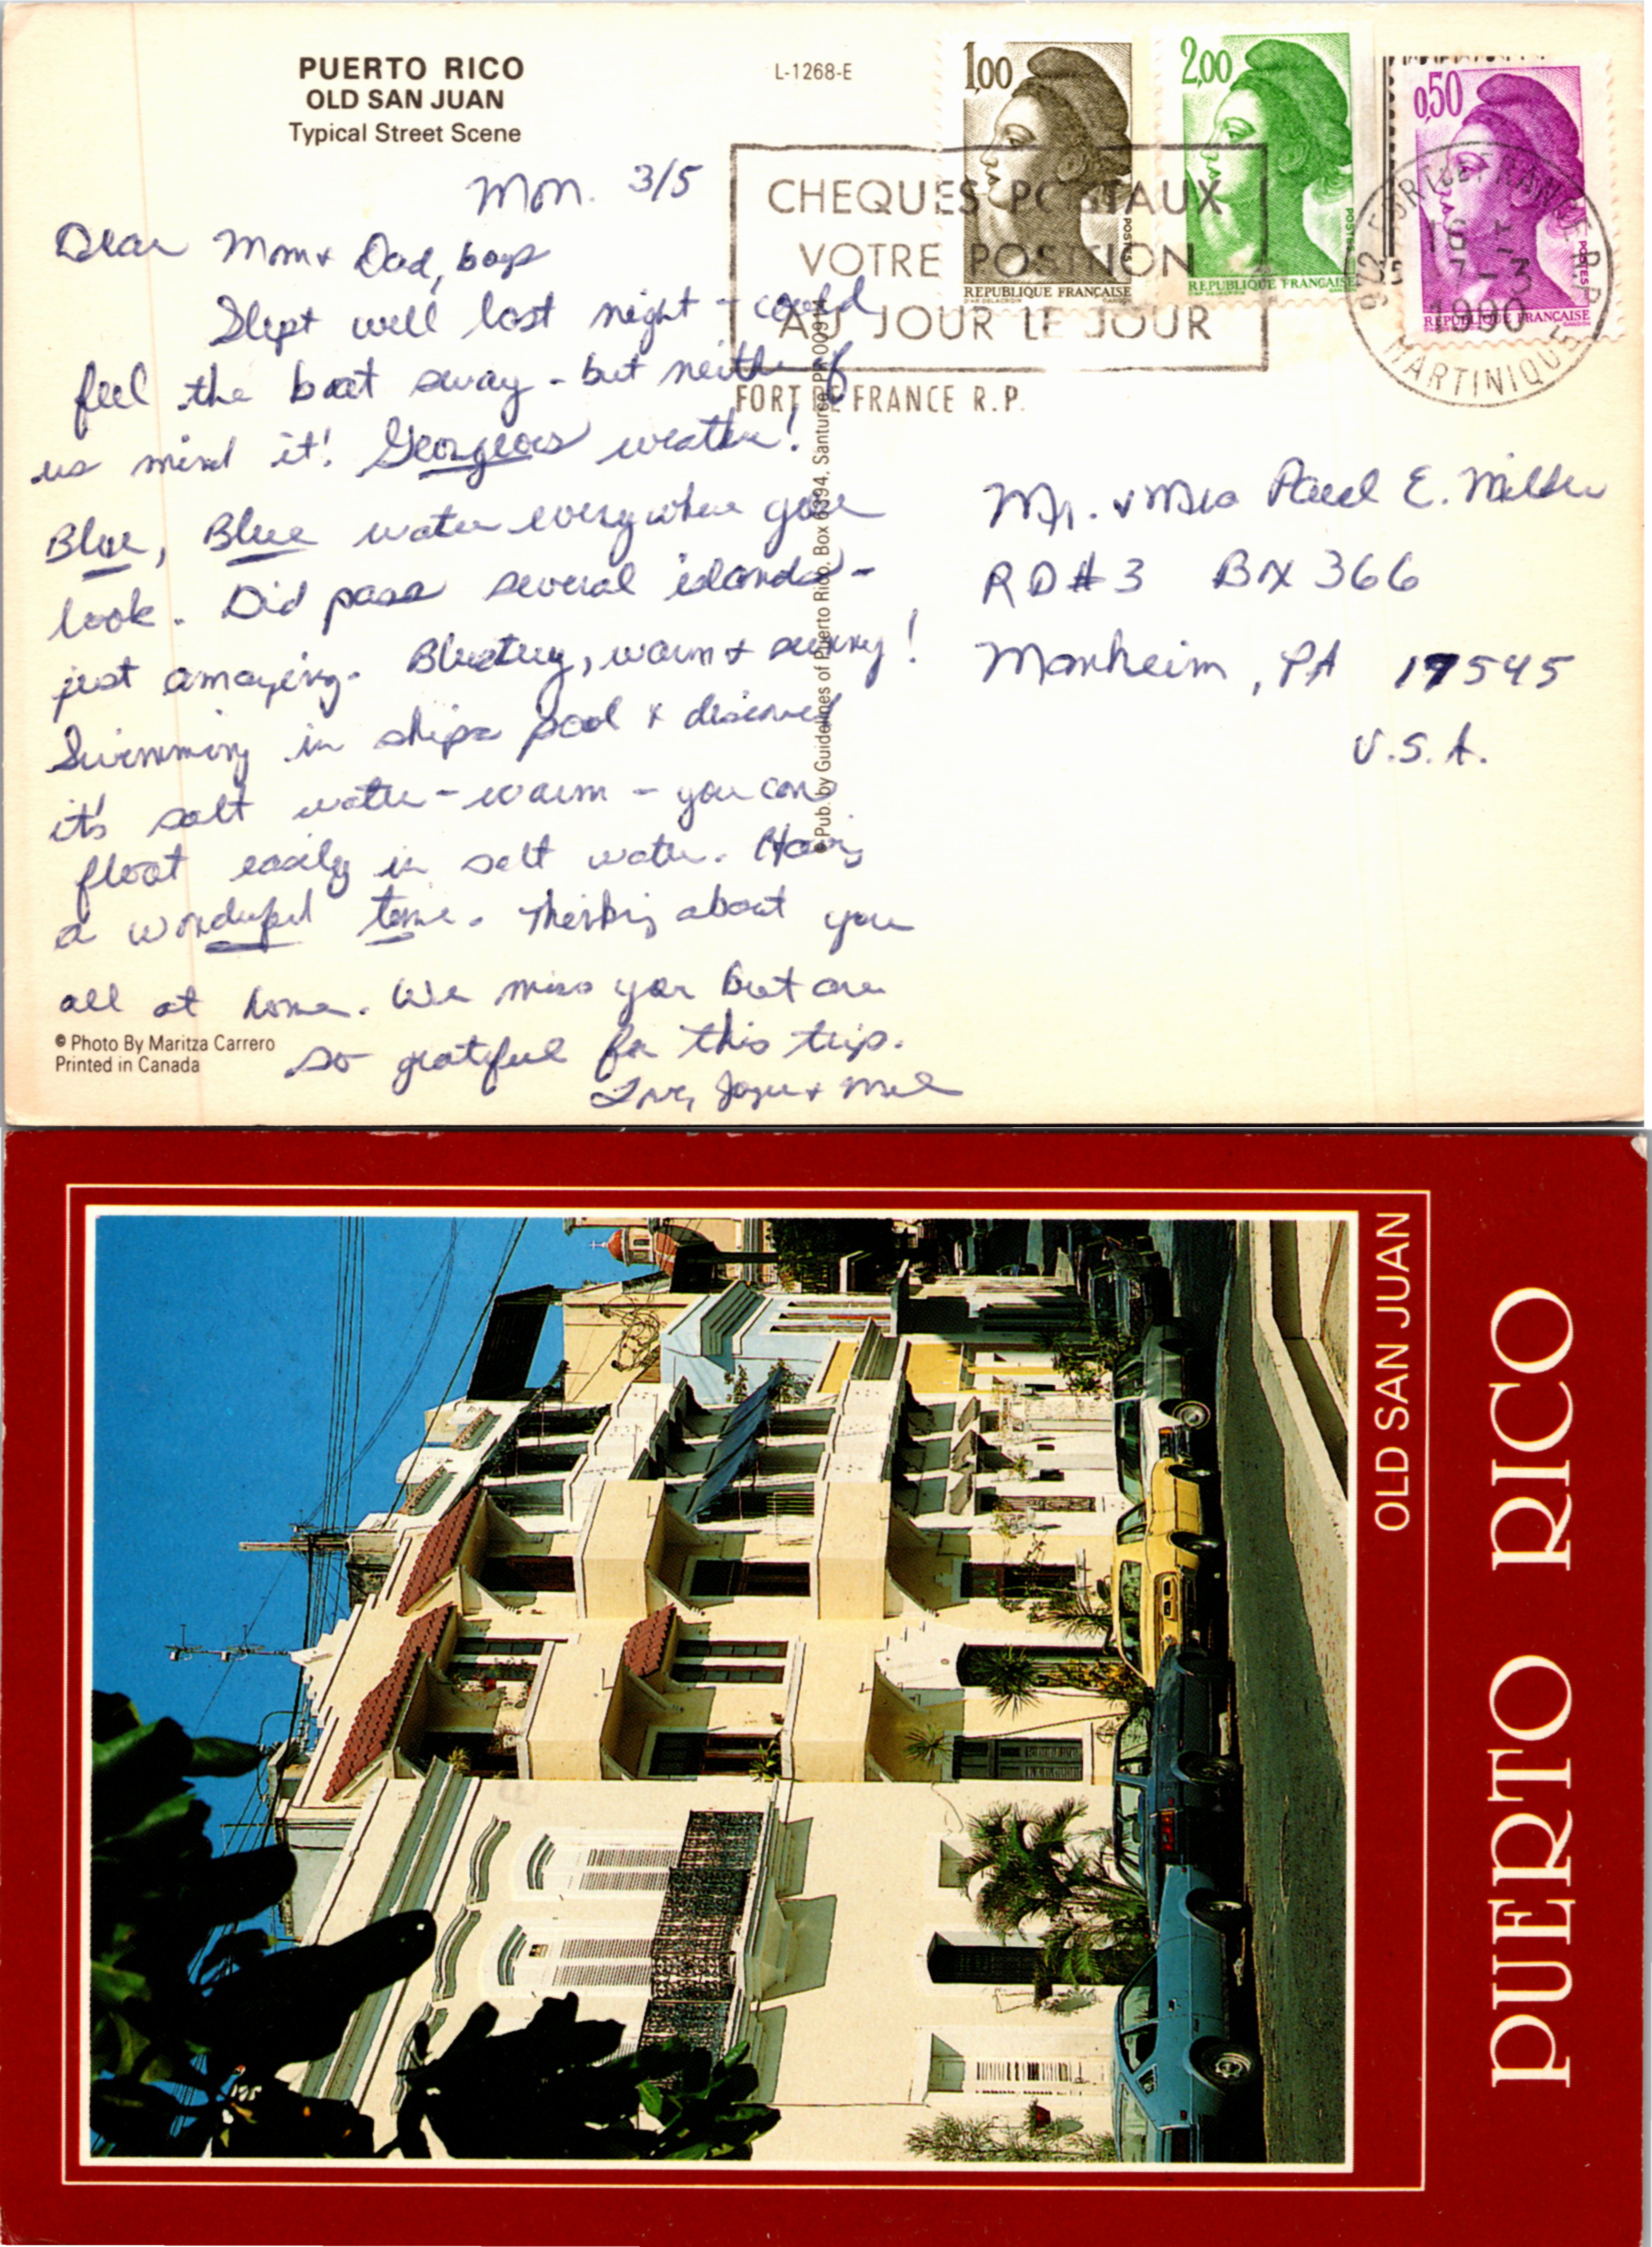 PUERTO RICO
OLD SAN JUAN
Typical Street Scene
L-1268-E
1,00
POSTES
REPUBLIQUE FRANÇAISE
2,00
POSTES
REPUBLIQUE FRANÇAISE
0,50
POSTES
REPUBLIQUE FRANÇAISE
CHEQUES POSTAUX
VOTRE POSITION
AU JOUR LE JOUR
FORT DE FRANCE R.P.
972 FORT DE FRANCE R.P.
1990
MARTINIQUE
Mon. 3/5
Dear Mom & Dad, boys
Slept well last night - could
feel the boat sway - but neither of
us mind it! Georgeous weather!
Blue, Blue water everywhere you
look. Did pass several islands -
just amazing. Blustery, warm & sunny!
Swimming in ships pool & discovered
it's salt water - warm - you can
float easily in salt water. Having
a wonderful time. Thinking about you
all at home. We miss you but are
so grateful for this trip.
Love, & Mel
Mr. & Mrs Paul E.
RD#3 Bx 366
Manheim, PA 17545
U.S.A.
Pub. by Guidelines of Puerto Rico, Box 6394, Santurce, PR 00914
© Photo By Maritza Carrero
Printed in Canada
OLD SAN JUAN
PUERTO RICO